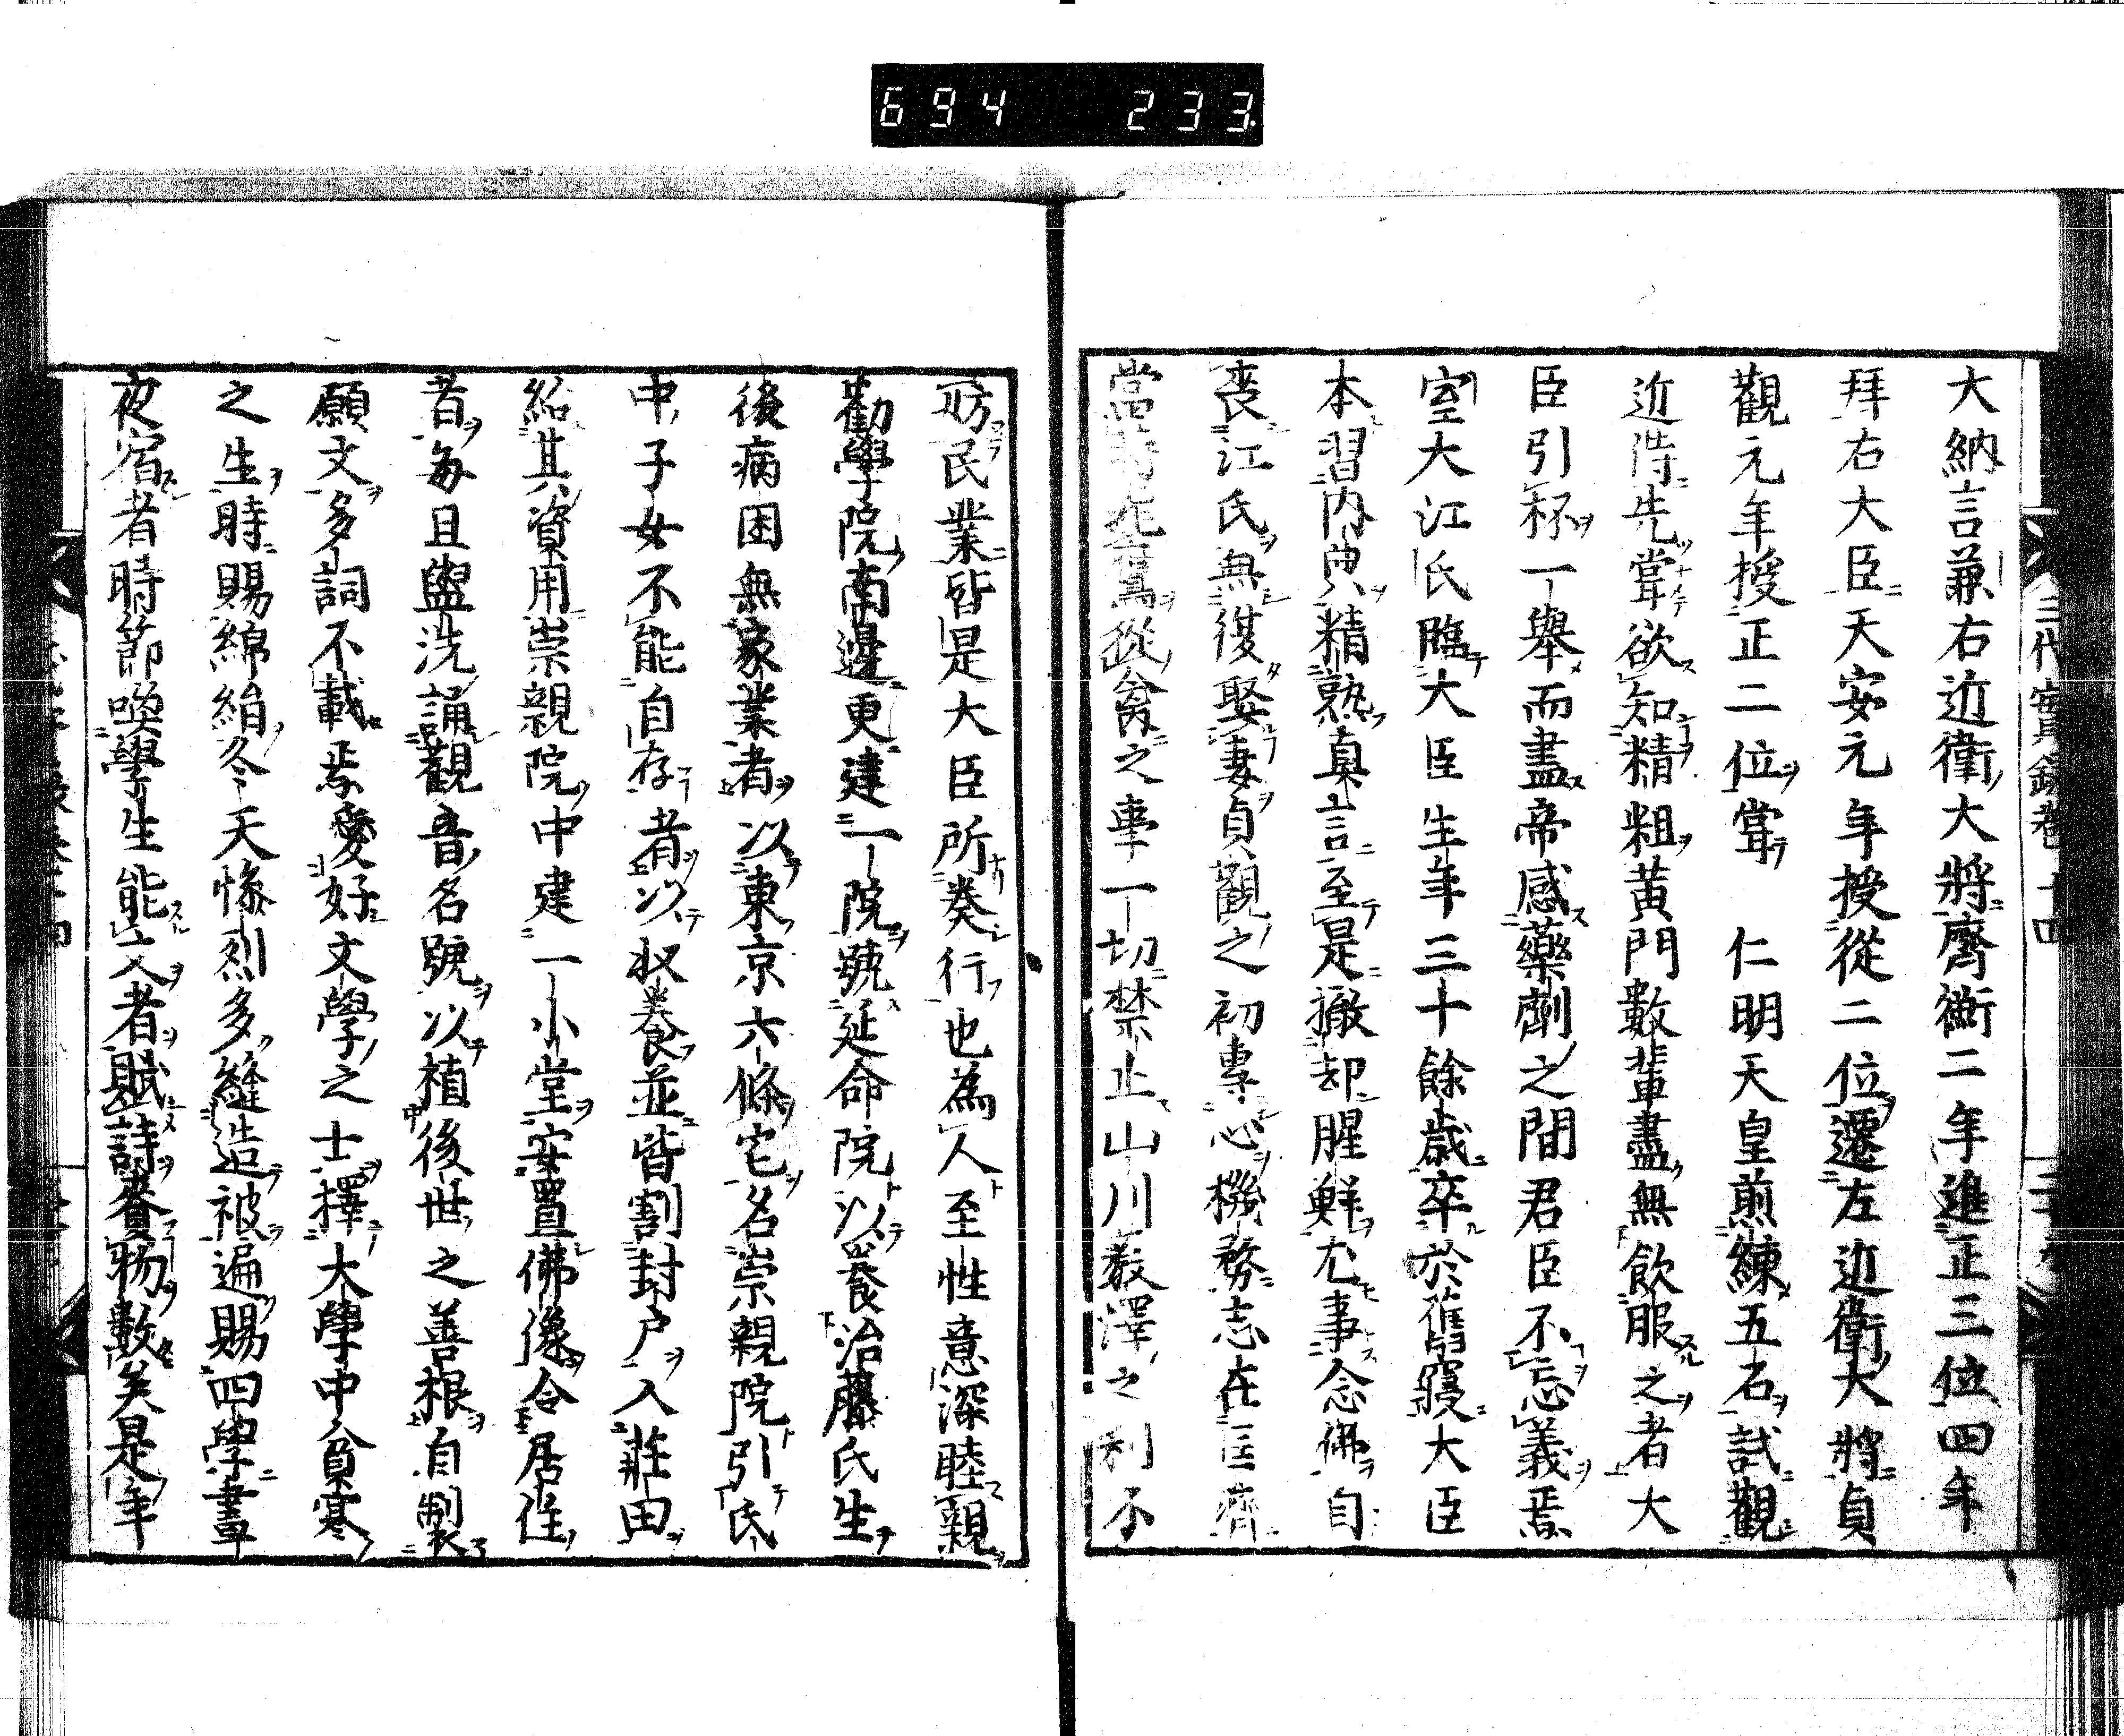 694 233
三代實録巻十四
大納言兼右近衛大將齊衡二年進正三位四年
拜右大臣天安元年授從二位遷左近衛大將貞
觀元年授正二位嘗 仁明天皇煎練五石試觀
近侍先嘗欲知精粗黄門數輩盡無飲服之者大
臣引杯一擧而盡帝感藥劑之間君臣不忘義焉
室大江氏臨大臣生年三十餘歳卒於舊寢大臣
本習内典精熟真言至是撤却腥鮮尤事念佛自
喪江氏無復娶妻貞觀之初專心機務志在匡濟
當時　　從禽之事一切禁止山川藪澤之利不
妨民業皆是大臣所奏行也為人至性意深睦親
勸學院南邊更建一院號延命院以養治藤氏生
後病困無家業者以東京六條宅名崇親院引氏
中子女不能自存者以収養並皆割封户入莊田
給其資用崇親院中建一小堂安置佛像令居住
者毎且盥洗誦觀音名號以植後世之善根自製
願文多詞不載焉愛好文學之士擇大學中貧寒
之生時賜綿絹冬天慘烈多縫造被遍賜四學晝
夜宿者時節喚學生能文者賦詩賚物數矣是年